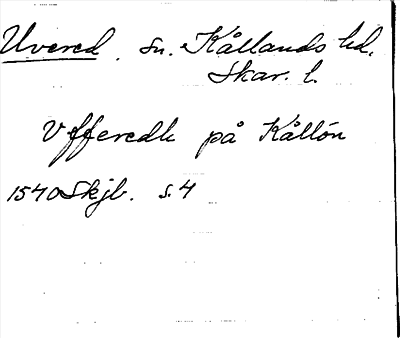 Uvered. sn. Kållands hd.
Skar. l.
Vfferedh på Kållön
1540 Skjb. s. 4